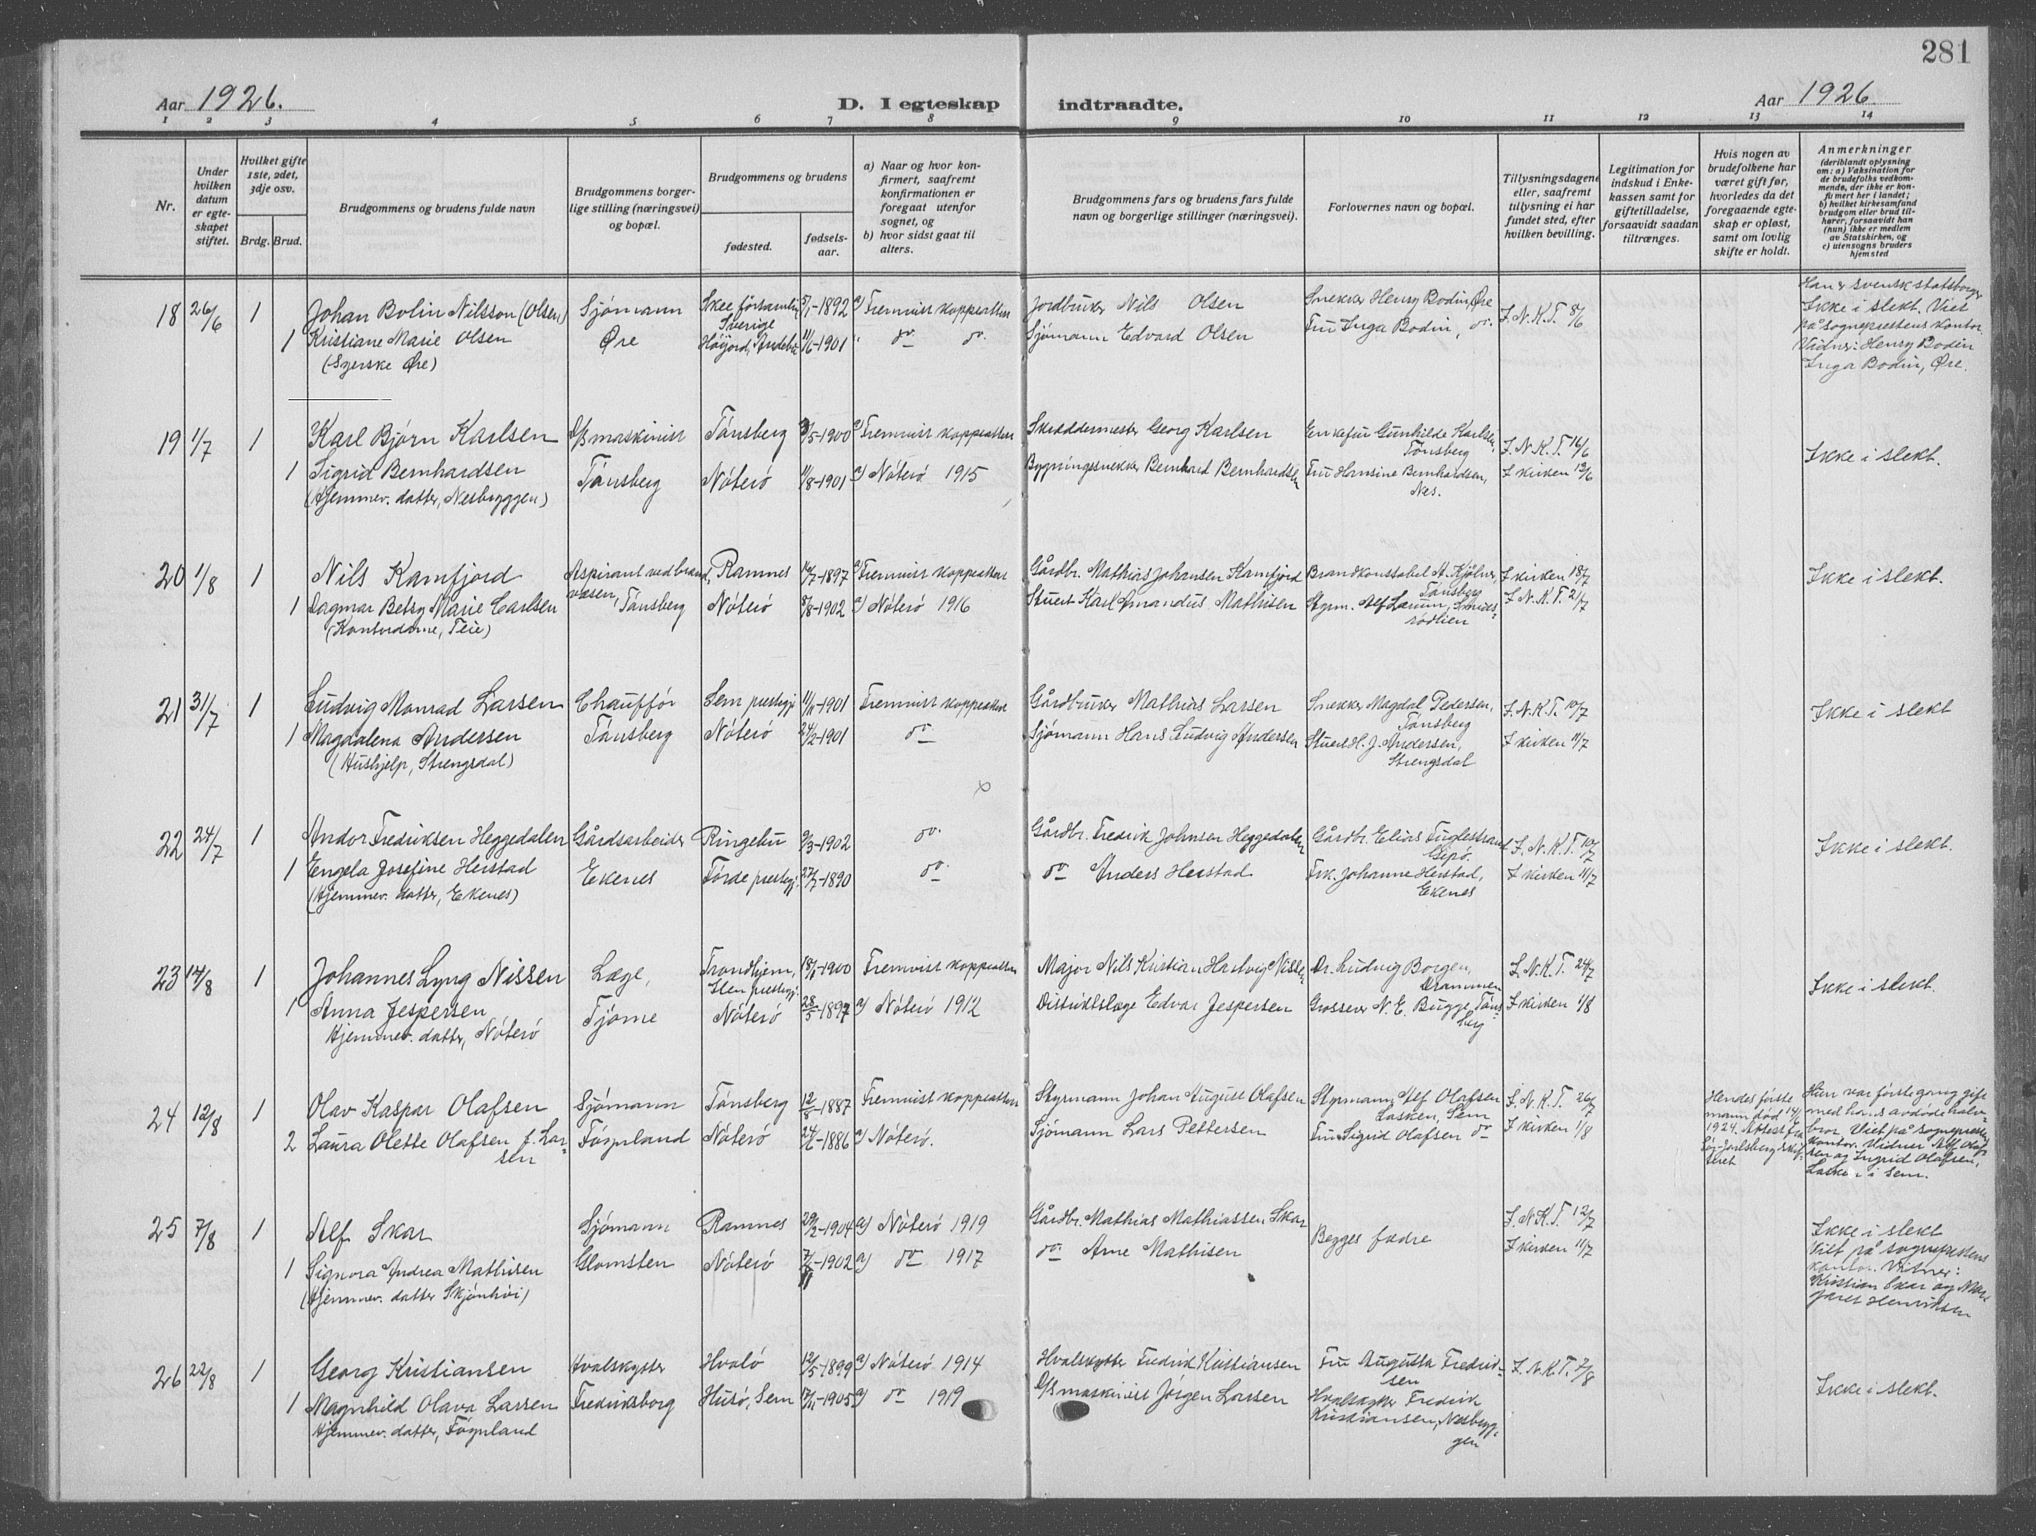 281
Aar 1926.
D. I egteskap indtraadte.
Aar 1926.
1 2 3 4 5 6 7 8 9 10 11 12 13 14
Nr.
Under hvilken datum er egteskapet stiftet.
Hvilket gifte 1ste, 2det, 3dje osv.
Brdg. Brud.
Brudgommens og brudens fulde navn
Brudgommens borgerlige stilling (næringsvei) og bopæl.
Brudgommens og brudens
fødested.
fødselsaar.
a) Naar og hvor konfirmert, saafremt konfirmationen er foregaat utenfor sognet, og
b) hvor sidst gaat til alters.
Brudgommens fars og brudens fars fulde navn og borgerlige stillinger (næringsvei).
Forlovernes navn og bopæl.
Tillysningsdagene eller, saafremt tillysning ei har fundet sted, efter hvilken bevilling.
Legitimation for indskud i Enkekassen samt for giftetilladelse, forsaavidt saadan tiltrænges.
Hvis nogen av brudefolkene har været gift før, hvorledes da det foregaaende egteskap er opløst, samt om lovlig skifte er holdt.
Anmerkninger
(deriblandt oplysning om: a) Vaksination for de brudefolks vedkommende, der ikke er konfirmert her i landet;
b) hvilket kirkesamfund brudgom eller brud tilhører, forsaavidt han (hun) ikke er medlem av Statskirken, og
c) utensogns bruders hjemsted
18 26/6 1 Johan Bolin Nilsson (Olsen) Sjømann Skee församlin Sverige 5/1-1892 a) Fremvist koppeattest Jordbruker Nils Olsen Snekker Henry Bodin, Øre J.N.K.T. 8/6
1 Kristiane Marie Olsen Øre Høijord, Andebu 11/6-1901 do do. Sjømann Edvard Olsen Fru Inga Bodin, do.
(Syerske Øre)
Han er svensk statsborger
Ikke i slekt. Viet
på sogneprestens kontor.
Vidner: Henry Bodin
Inga Bodin, Øre.
19 1/7 1 Karl Bjørn Karlsen D/S maskinist Tønsberg 3/5-1900 a) Fremvist koppeattest Skreddermester Georg Karlsen Enkefru Gunhilde Karlsen, Tønsberg J.N.K.T. 16/6 Ikke i slekt.
1 Sigrid Bernhardsen Tønsberg Nøterø 11/8-1901 a) Nøterø 1915 Bygningssnekker Bernhard Bernhardsen Fru Hansine Bernhardsen, Nes. I kirken 13/6
(Hjemmev. datter, Nesbryggen)
20 1/8 1 Nils Kamfjord Aspirant ved brandvæsen, Tønsberg Ramnes 16/7-1897 a) Fremvist koppeattest Gårdbr. Mathias Johansen Kamfjord Brandkonstabel A. Kjølner, Tønsberg I kirken 18/7 Ikke i slekt.
1 Dagmar Betsy Marie Carlsen Nøterø 8/8-1902 a) Nøterø 1916 Stuert Karl Amandus Mathisen Styrm. Alf Lærum, Smidsrødlien J.N.K.T. 21/7
(Kontordame, Teie)
21 31/7 1 Ludvig Monrad Larsen Chauffør Sem prestegj. 11/11-1901 Fremvist koppeattest Gårdbruker Mathias Larsen Snekker Magdal Pedersen, Tønsberg J.N.K.T. 10/7 Ikke i slekt
1 Magdalena Andersen Tønsberg Nøterø 24/2-1901 do Sjømann Hans Ludvig Andersen Stuert H. J. Andersen, Strengsdal I kirken 11/7
(Hushjelp, Strengsdal)
22 24/7 1 Andor Fredriksen Heggedalen Gårdsarbeider Ringebu 9/3-1902 do. Gårdbr. Fredrik Johnsen Heggedalen Gårdbr. Elias Fuglestrand Gipø. J.N.K.T. 10/7 Ikke i slekt.
1 Engela Josefine Herstad Ekenes Førde prestegj. 27/7-1890 do do Anders Herstad Frk. Johanne Herstad, Ekenes I kirken 11/7
(Hjemmev. datter, Ekenes)
23 14/8 1 Johannes Lyng Nissen Læge, Trondhjem, Ilen prestegj. 18/1-1900 Fremvist koppeattest Major Nils Kristian Hartvig Nissen Dr. Ludvig Borgen, Drammen J.N.K.T. 24/7 Ikke i slekt.
1 Anna Jespersen Tjøme Nøterø 28/5-1897 a) Nøterø 1912 Distriktslæge Edvar Jespersen Grosserer N. E. Bugge, Tønsberg I kirken 1/8
Hjemmev. datter, Nøterø
24 12/8 1 Olav Kaspar Olafsen Sjømann Tønsberg 12/8-1887 Fremvist koppeattest Styrmann Johan August Olafsen Styrmann Alf Olafsen Lasken, Sem J.N.K.T. 26/7
2 Laura Olette Olafsen f. Larsen Føynland Nøterø 24/6-1886 a) Nøterø. Sjømann Lars Pettersen Fru Sigrid Olafsen do I kirken 1/8
Hendes første mann død 14/1 1924. Attest fra Søy-Jarlsberg skifteret
Hun var første gang gift
med hans avdøde halvbror. Viet på sogneprestens
kontor. Vidner Alf Olafsen og Ingrid Olafsen,
Lasken i Sem.
25 7/8 1 Alf Skar Sjømann Ramnes 29/2-1904 a) Nøterø 1919 Gårdbr. Mathias Mathiassen Skar Begges fædre J.N.K.T. 12/7
1 Signora Andrea Mathisen Glomsten Nøterø 7/11-1902 a) do 1917 do. Arne Mathisen I kirken 11/7
(Hjemmev. datter Skjønhøi)
Ikke i slekt
Viet på sogneprestens
kontor. Vitner:
Kristian Skar og Margaret Henriksen
26 22/8 1 Georg Kristiansen Hvalskytter Hvalø 12/5-1899 a) Nøterø 1914 Hvalskytter Fredrik Kristiansen Fru Augusta Fredriksen J.N.K.T. 7/8 Ikke i slekt.
1 Magnhild Olava Larsen Fredriksborg Husø, Sem 17/11-1905 a) do 1919 D/S maskinist Jørgen Larsen Hvalskytter Fredrik Kristiansen, Nesbryggen
Hjemmev. datter, Føynland